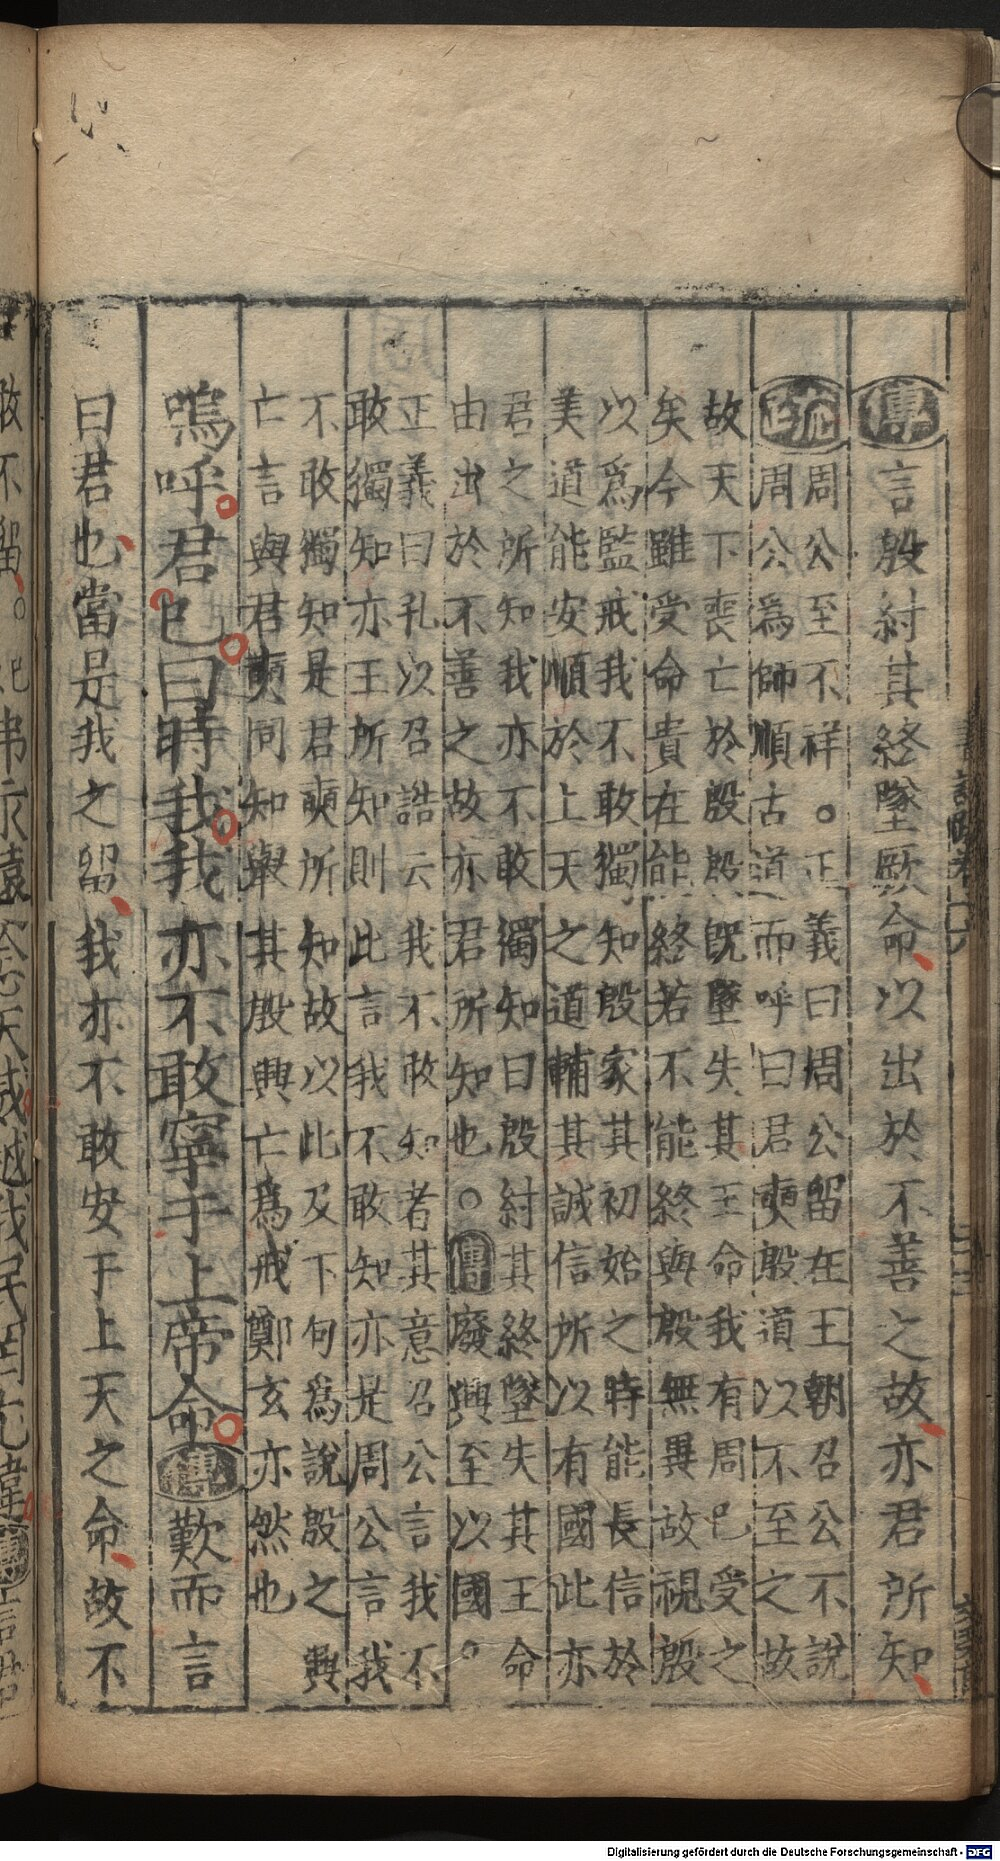 傳言殷紂其終墜厥命以出於不善之故亦君所知
疏周公至不祥。正義曰周公留在王朝召公不說
周公爲師順古道而呼曰君奭殷道以不至之故
故天下喪亡於殷殷既墜失其王命我有周已受之
矣今雖受命貴在能終若不能終與殷無異故視殷
以爲監戒我不敢獨知殷家其初始之時能長信於
美道能安順於上天之道輔其誠信所以有國此亦
君之所知我亦不敢獨知曰殷紂其終墜失其王命
由出於不善之故亦君所知也。傳廢興至以國。
正義曰孔以召誥云我不敢知者其意召公言我不
敢獨知亦王所知則此言我不敢知亦是周公言我
不敢獨知是君奭所知故以此及下句爲說殷之興
亡言與君奭同知舉其殷興亡爲戒鄭玄亦然也
嗚呼君已曰時我我亦不敢寧于上帝命傳歎而言
曰君也當是我之留我亦不敢安于上天之命故不
Digitalisierung gefördert durch die Deutsche Forschungsgemeinschaft - DFG